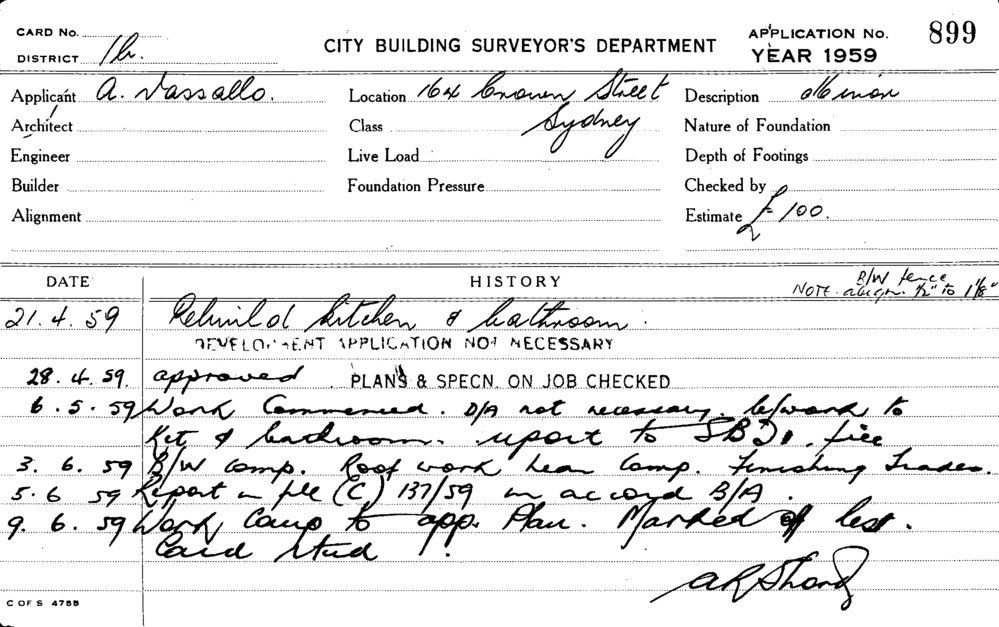 CARD No.
DISTRICT
CITY BUILDING SURVEYOR'S DEPARTMENT
APPLICATION No. 899
YEAR 1959
Applicant A. Vassallo. Location 164 Crown Street Description Minor
Architect Class Sydney Nature of Foundation
Engineer Live Load Depth of Footings
Builder Foundation Pressure Checked by
Alignment Estimate £100.
DATE HISTORY B/W fence
NOTE align. ½" to 1⅛"
21.4.59 Rebuild kitchen & bathroom.
DEVELOPMENT APPLICATION NOT NECESSARY
28.4.59. approved PLANS & SPECN. ON JOB CHECKED
6.5.59 Work Commenced. D/A not necessary. b/work to
Kit & bathroom. report to file
3.6.59 B/W Comp. Roof work near Comp. Finishing Trades.
5.6 59 Report in file (C) 137/59 in accord B/A.
9.6.59 Work Comp to app. Plan. Marked off list.
Card
C OF S 4755